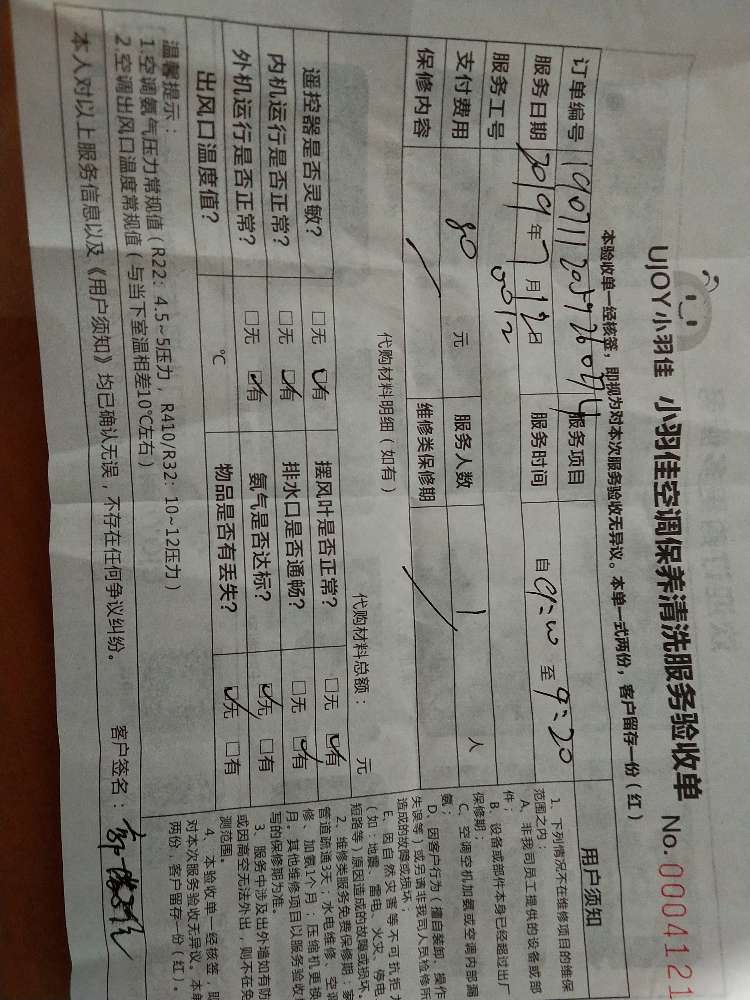 UJOY小羽佳 小羽佳空调保养清洗服务验收单 No.0004121
本验收单一经核签，即视为对本次服务验收无异议。本单一式两份，客户留存一份（红）
订单编号 服务项目
服务日期 2019年7月12日 服务时间 自9:00至9:20
服务工号 0012
支付费用 80 元 服务人数 1 人
保修内容 / 维修类保修期 /
代购材料明细（如有） 代购材料总额： 元
遥控器是否灵敏？ □无 ☑有 摆风叶是否正常？ □无 ☑有
内机运行是否正常？ □无 ☑有 排水口是否通畅？ □无 ☑有
外机运行是否正常？ □无 ☑有 氨气是否达标？ ☑无 □有
出风口温度值？ ℃ 物品是否有丢失？ ☑无 □有
温馨提示：
1.空调氨气压力常规值（R22：4.5~5压力，R410/R32：10~12压力）
2.空调出风口温度常规值（与当下室温相差10℃左右）
本人对以上服务信息以及《用户须知》均已确认无误，不存在任何争议纠纷。 客户签名：
用户须知
1、下列情况不在维修项目的维保
范围之内：
A、非我司员工提供的设备或部
件；
B、设备或部件本身已经超过出厂
保修期；
C、空调空机加氨或空调内部漏
氨；
D、因客户行为（擅自装卸、操作
失误等）或另请非我司人员检修所
造成的故障或损坏；
E、因自然灾害等不可抗拒
（如：地震、雷电、火灾、停电、
短路等）原因造成的故障或损坏。
2、维修类服务免费保修期：
管道疏通3天；水电维修、空调
修、加氨1个月；压缩机更换
月。其他维修项目以服务验收
写的保修期为准。
3、服务中涉及出外墙如有防
或因高空无法外出，则不在
测范围。
4、本验收单一经核签，即
对本次服务验收无异议。本单
两份，客户留存一份（红）。